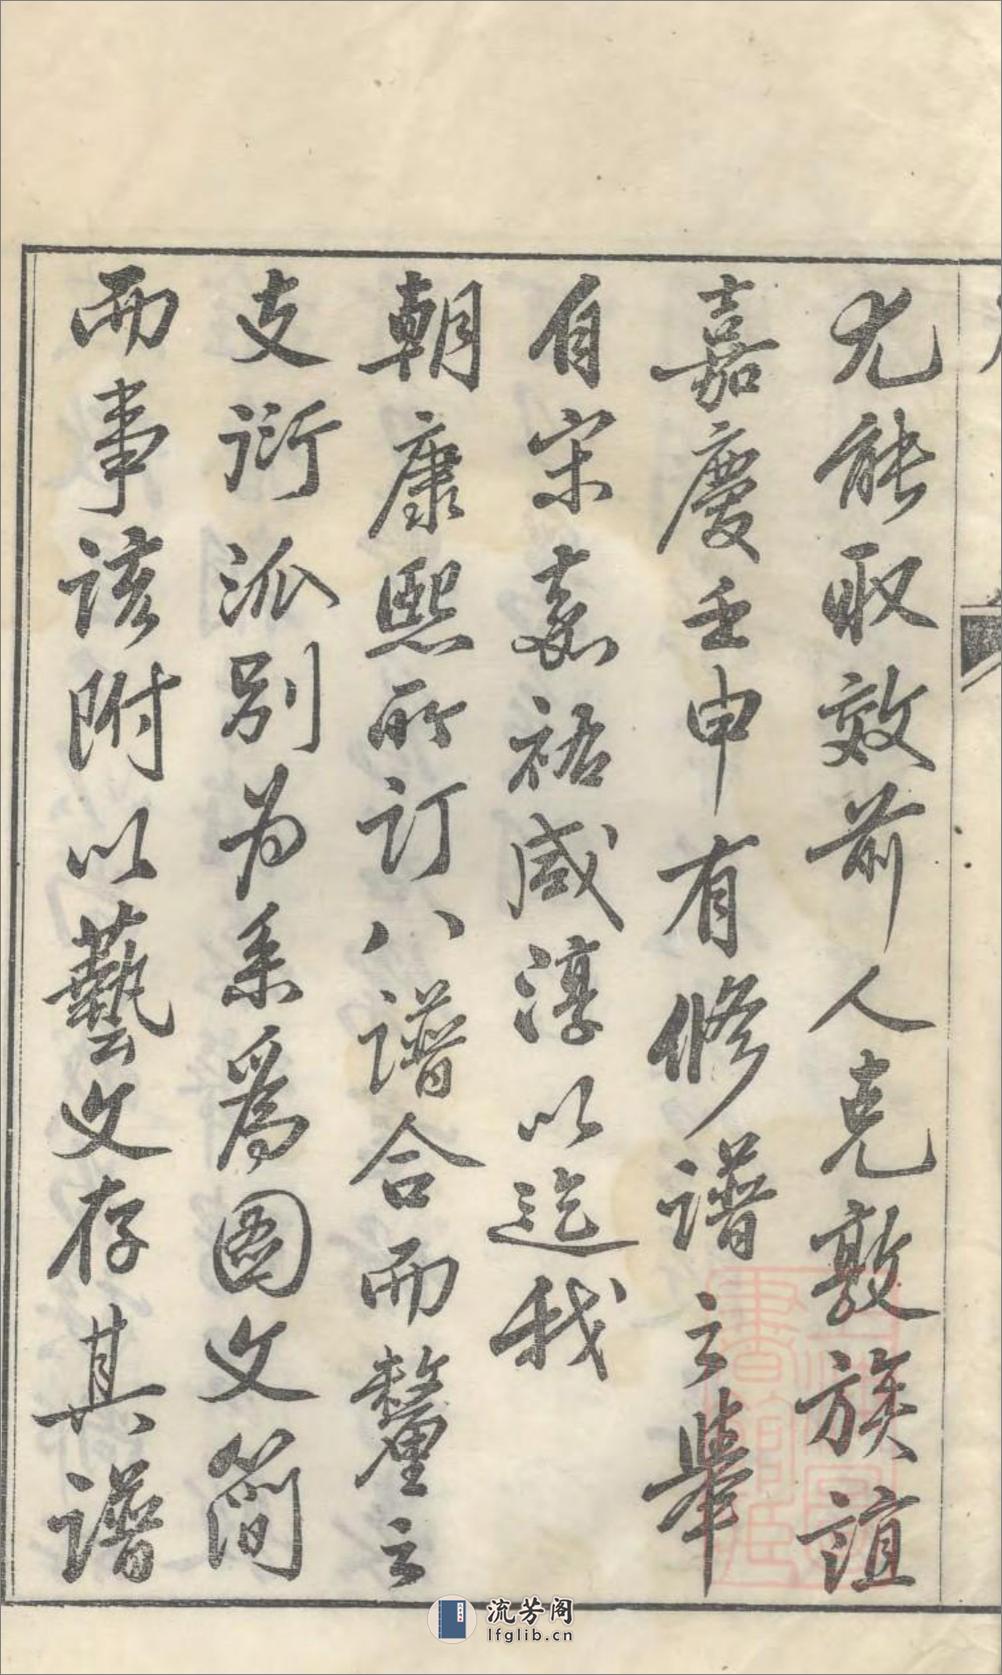 尤能取效前人克敦族誼
嘉慶壬申有修譜之舉
自宋嘉祐咸淳以迄我
朝康熙所訂八譜合而釐之
支衍派別为系爲圖文简
而事该附以藝文存其譜
流芳阁
lfglib.cn